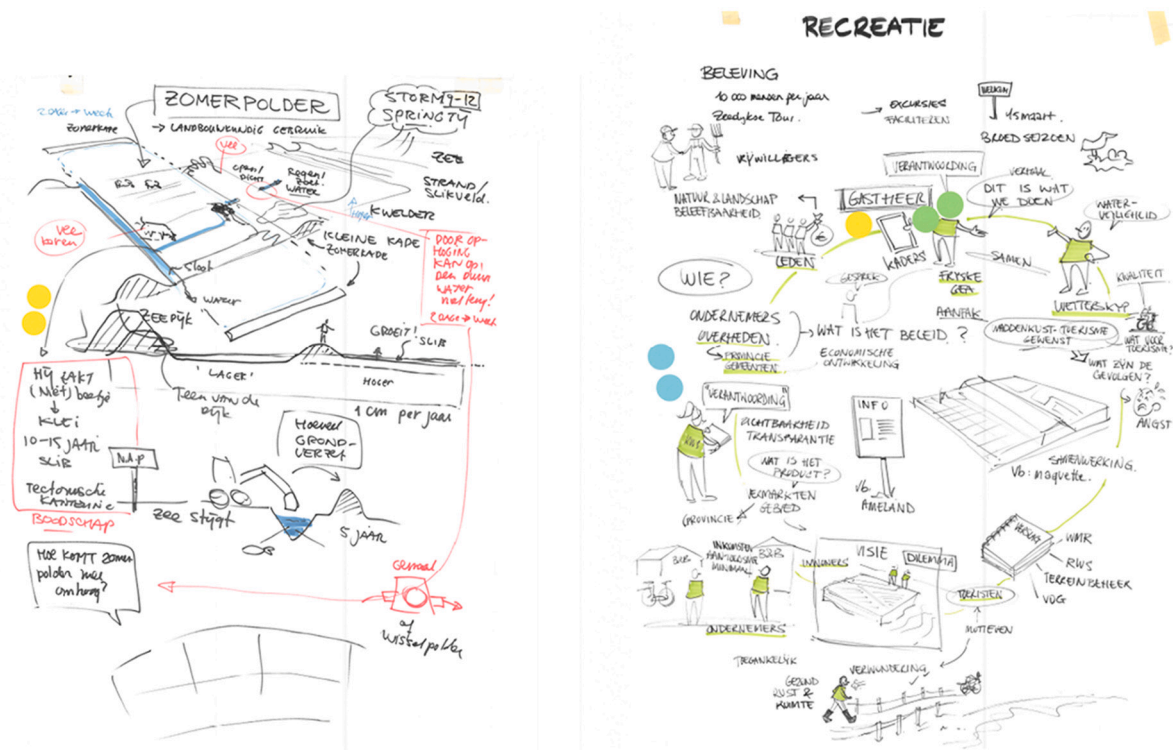 ZOMERPOLDER
STORM 9-12
SPRINGTY
ZOMERKADE
→ LANDBOUWKUNDIG GEBRUIK
vee
open/
DICHT
Regen/
zoet
WATER
ZEE
STRAND/
SLIKVELD.
KWELDER
KLEINE KADE
ZOMERKADE
vee
keren
Sloot
WATER
DOOR OP-
HOGING
KAN OP!
den duur
WATER
ZEEDIJK
GROEIT!
SLIB
'LAGER'
HOGER
Teen van de
DIJK
1 cm per jaar
HIJ ZAKT
(Niet) beetje
KLEI
10-15 JAAR
SLIB
Tectonische
KANTELING
BOODSCHAP
N.A.P
Zee stijgt
Hoeveel
GROND-
VERZET
5 JAAR
HOE KOMT Zomer
polder mee
omhoog?
Gemaal
of
Wisselpolder
RECREATIE
BELEVING
10 000 mensen per jaar
Zeedijkse Tour.
→ EXCURSIES
FACILITEREN
15 maart.
BROEDSEIZOEN
VRIJWILLIGERS
VERANTWOORDING
VERHAAL
DIT IS WAT
WE DOEN
NATUUR & LANDSCHAP
BELEEFBAARHEID.
GASTHEER
WATER-
VEILIGHEID.
LEDEN
KADERS
GESPREK
FRYSKE
GEA
SAMEN
WETTERSKYP
KWALITEIT
WIE?
ONDERNEMERS
OVERHEDEN
PROVINCIE
GEMEENTEN
WAT IS HET BELEID?
ECONOMISCHE
ONTWIKKELING
AANPAK
WADDENKUST-TOERISME
GEWENST
WAT VOOR
TOERISME?
WAT ZIJN DE
GEVOLGEN?
ANGST
"VERANTWOORDING"
RWS
ZICHTBAARHEID
TRANSPARANTIE
WAT IS HET
PRODUCT?
VERMARKTEN
GEBIED
PROVINCIE
INFO
Vb.
AMELAND
SAMENWERKING.
Vb: maquette.
WMR
RWS
TERREINBEHEER
VOG
B&B
INKOMSTEN
AAN TOERISME
MINIMAAL
B&B
INWONERS
VISIE
DILEMMA
TOERISTEN
MOTIEVEN
ONDERNEMERS
TOEGANKELIJK
VERWONDERING
GEZOND
RUST &
RUIMTE